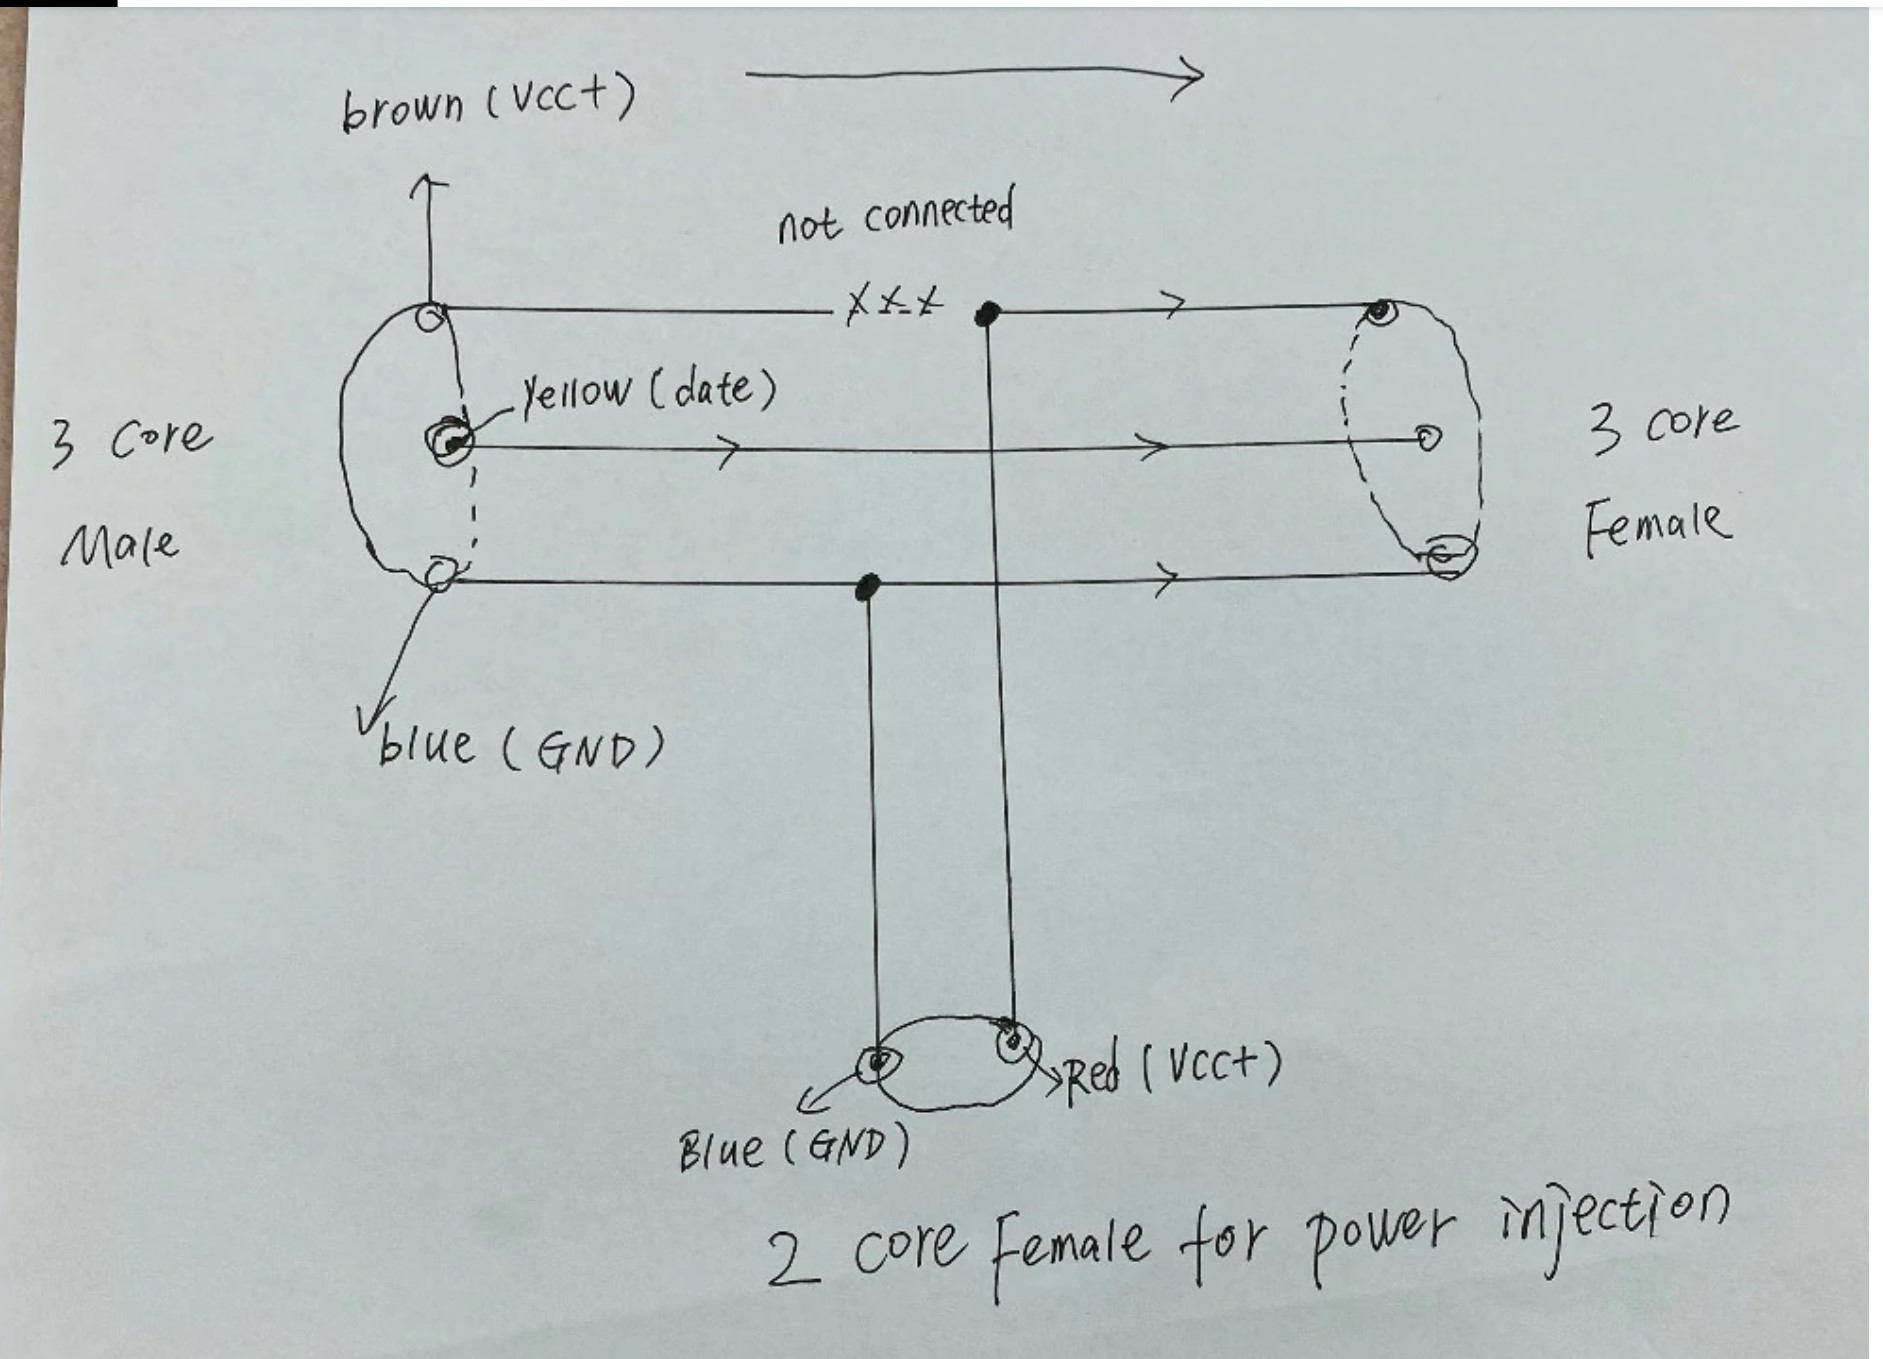 brown (VCC+)
not connected
xxx
Yellow (date)
3 Core
Male
3 core
Female
blue (GND)
Red (VCC+)
Blue (GND)
2 core Female for power injection